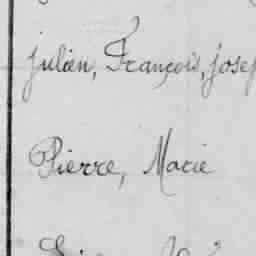 julien, François, jose
Pierre, Marie